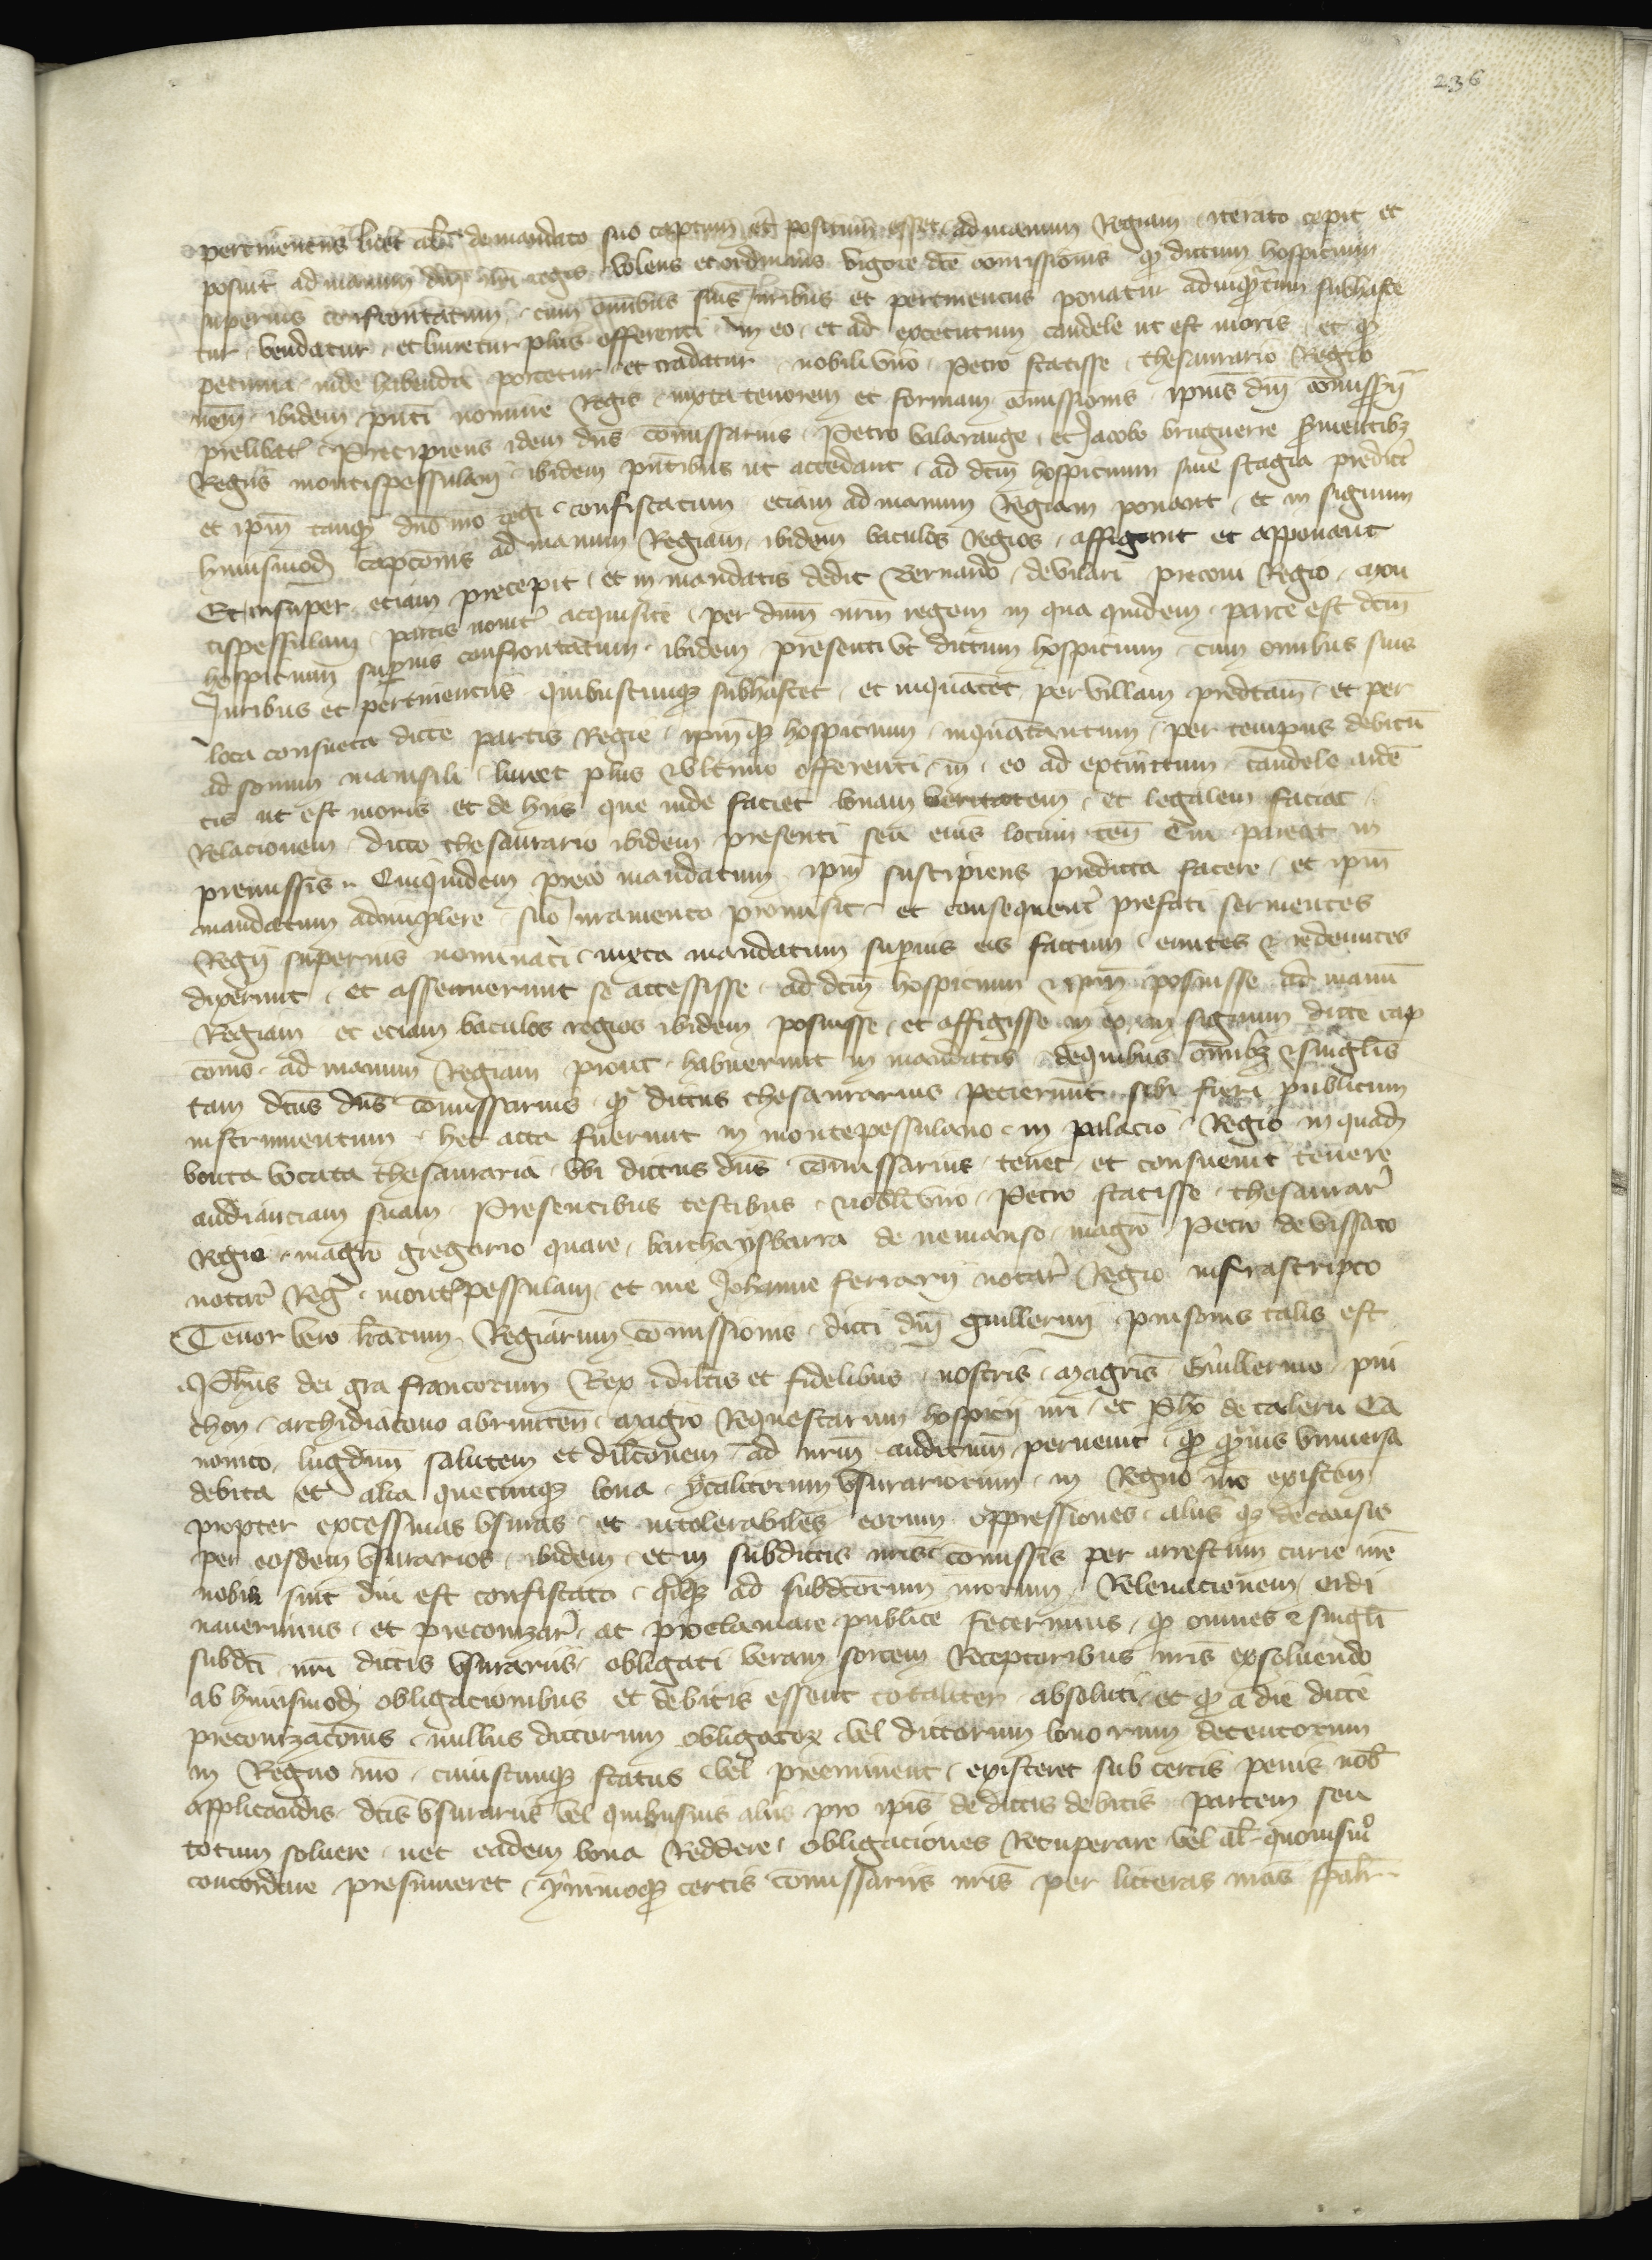 236
pertinenciis licet alias de mandato suo captum et positum esset ad manum Regiam iterato cepit et
posuit ad manum dicti dni nri regis volens et ordinans vigore dce comissionis qd dictum hospicium
superius confrontatum cum omnibus suis Juribus et pertinenciis ponatur ad inquantum subhaste
tur vendatur et liuretur plus offerenti in eo et ad extinctum candele ut est moris et qd
pecunia inde habenda portetur et tradatur nobili viro Petro scatisse thesaurario Regio
nem ibidem pnti nomine Regis iuxta tenorem et formam comissionis ipius dni comissarii
prelibati Precipiens idem dns comissarius Petro balarauge et Jacobo bruguerie seruientibz
Regiis montispessulani ibidem pntibus ut accedant ad dcm hospicium siue stagia predicta
et ipm tanqm dno nro regi confiscatum eciam ad manum Regiam ponant et in signum
huiusmodi capcionis ad manum Regiam ibidem baculos Regios affigant et apponant
Et insuper eciam precepit et in mandatis dedit Bernardo de vilari preconi Regio mon
tispessulani partis nouiter acquisite per dnm nrm regem in qua quidem parte est dcm
hospicium superius confrontatum ibidem presenti vt dictum hospicium cum omnibus suis
Juribus et pertinenciis quibuscunqz subhastet et inquantet per villam predictam et per
loca consueta dicte partis Regie ipmqz hospicium inquantatum per tempus debitu
ad sonum mainsili liuret plus & vltimo offerenti in eo ad extinctum candele arde
tis ut est moris et de hiis que inde faciet bonam veritatem et legalem faciat
Relacionem dicto thesaurario ibidem presenti seu eius locum ten Cui pareat in
premissis Quiquidem preco mandatum ipm suscipiens predicta facere et ipm
mandatum adimplere suo iuramento promisit et consequenter prefati seruientes
Regii superius nominati iuxta mandatum superius eis factum euntes & redeuntes
dixerunt et asseruerunt se accessisse ad dcm hospicium & ipm posuisse ad manu
Regiam et eciam baculos regios ibidem posuisse et affigisse in eo in signum dicte cap
cionis ad manum Regiam prout habuerunt in mandatis de quibus omnibz & singlis
tam dcus dns comissarius qm dictus thesaurarius petierunt sibi fieri publicum
instrumentum hec acta fuerunt in montepessulano in palacio Regio in quadam
vouta vocata thesauraria vbi dictus dns comissarius tenet et consueuit tenere
audienciam suam Presentibus testibus nobili viro Petro scatisse thesaurar
Regio magro gregorio quare barchaysbarra de nemauso magro Petro de vissaco
notar Reg montispessulani et me Johanne ferrarii notar Regio infrascripto
Tenor vero lrarum Regiarum comissionis dicti dni guillermi pinsonis talis est
Phus dei gra francorum Rex dilcis et fidelibus nostris magris Guillermo pin
chon archidiacono abrincen magro Requestarum hospicii nri et Pho de caleru Ca
nonico lugdun salutem et dilconem ad nrm auditum peruenit qd quis vniuersa
debita et alia quecunqz bona ytalicorum vsurariorum in Regno nro existen
propter excessiuas vsuras et intolerabiles eorum oppressiones aliis qz de causis
per eosdem vsurarios ibidem et in subdictis nris comissis per arrestum curie nre
nobis sint diu est confiscato qz ad subdictorum nrorum Releuacionem ordi
nauerimus et preconizar ac proclamare publice fecerimus qd omnes & singli
subdti nri dictis vsurariis obligati veram sortem Receptoribus nris exsoluendo
ab huiusmodi obligacionibus et debitis essent totaliter absoluti et qd a die dicte
preconizacionis nullus dictorum obligatorz vel dictorum bonorum detentorum
in Regno nro cuiuscunqz status vel preeminent existeret sub certis penis nob
applicandis dcis vsurariis vel quibusuis aliis pro ipis de dictis debitis partem seu
totum soluere nec eadem bona Reddere obligaciones Recuperare vel al quouismo
concordare presumeret ymmoqz certis comissariis nris per litteras nras spalr